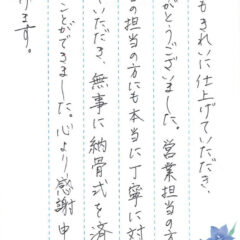 もきれいに仕上げていただき、
がとうございました。営業担当の方
の担当の方にも本当に丁寧に対
いただき、無事に納骨式を済
ことができました。心より感謝申
げます。